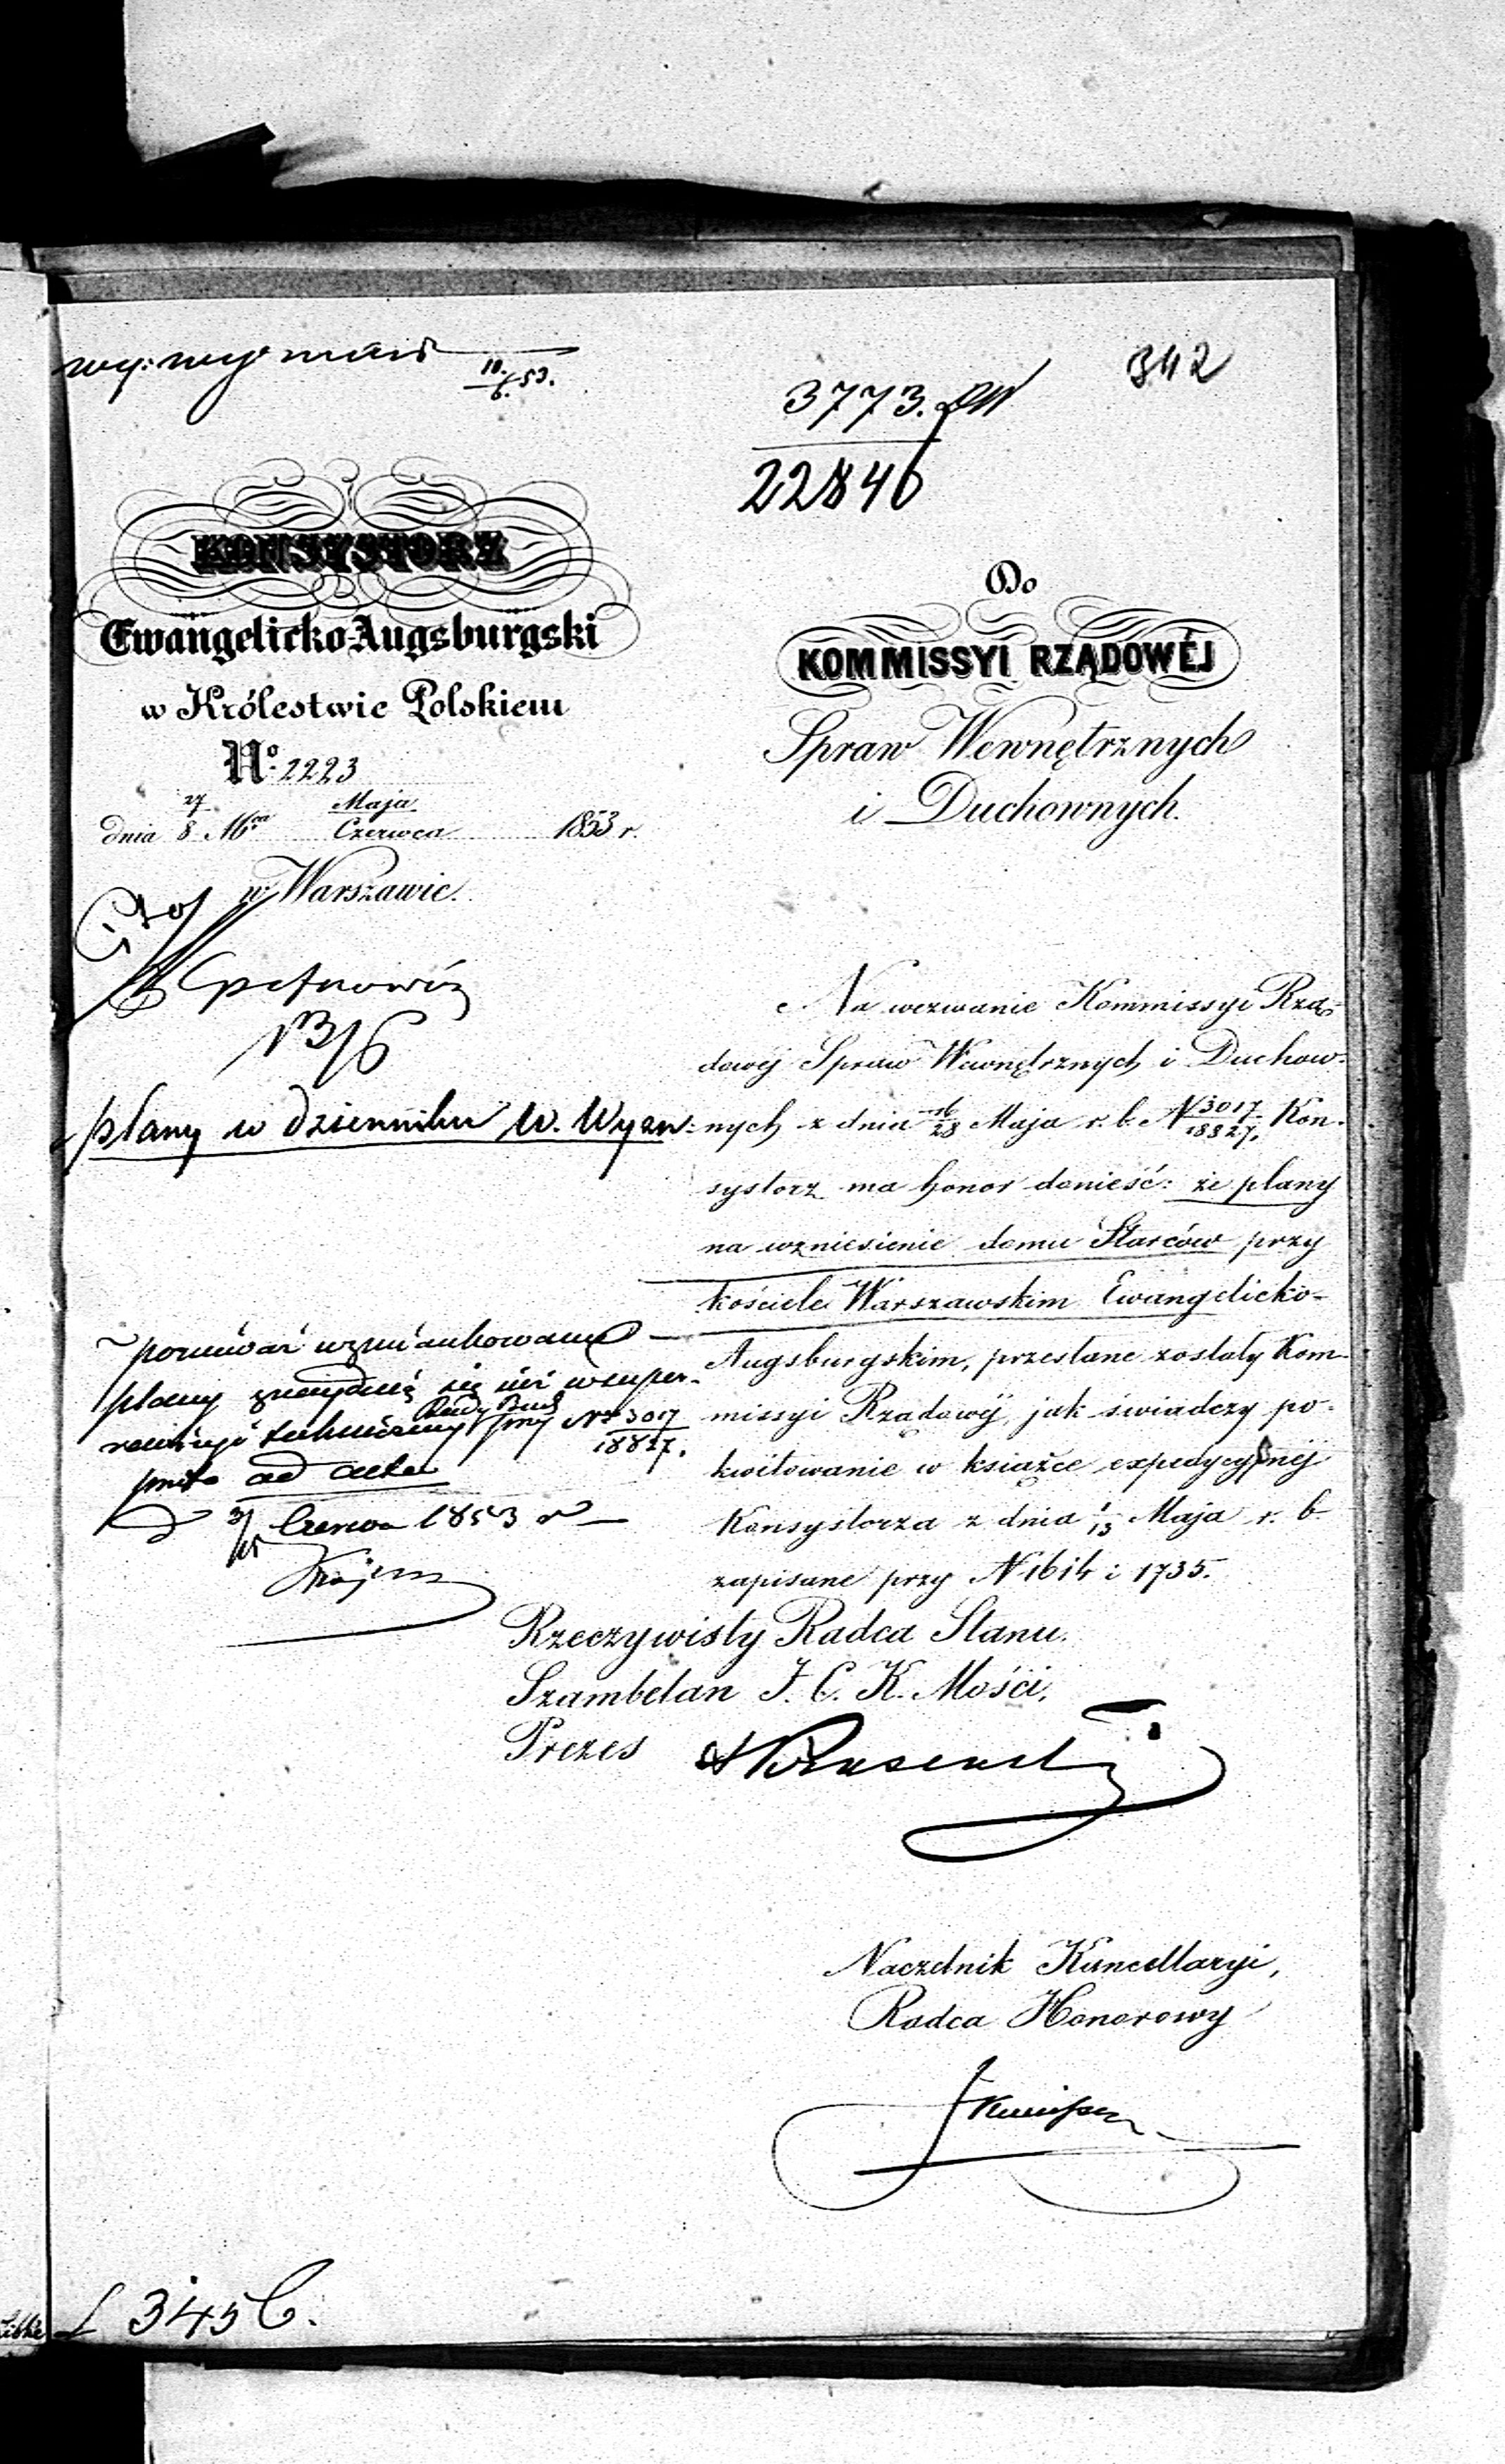 10./6. 53.
342
3773.
22846
KONSYSTORZ
Ewangelicko Augsburgski
w Królestwie Polskiem
No. 2223
dnia 27/8 Mca Maja/Czerwca 1853 r.
w Warszawie.
Cito
13/6
plany w dzienniku W. Wyzn:
Do
KOMMISSYI RZĄDOWÉJ
Spraw Wewnętrznych
i Duchownych.
Na wezwanie Kommissyi Rzą-
dowéj Spraw Wewnętrznych i Duchow-
nych z dnia 16/28 Maja r. b. N 3017/18827. Kon-
systorz ma honor donieść: że plany
na wzniesienie domu Starców przy
kościele Warszawskim Ewangelicko-
Augsburgskim, przesłane zostały Kom-
missyi Rządowéj, jak świadczy po-
kwitowanie w książce expedycyjnéj
Konsystorza z dnia 1/13 Maja r. b.
zapisane przy N 1614 i 1735.
ponieważ wzmiankowane
plany znajdują się
przy Nr 3017/18827.
ad acta
3/15 Czerwca 1853 r
Rzeczywisty Radca Stanu.
Szambelan J. C. K. Mości,
Prezes
Naczelnik Kancellaryi,
Radca Honorowy
345